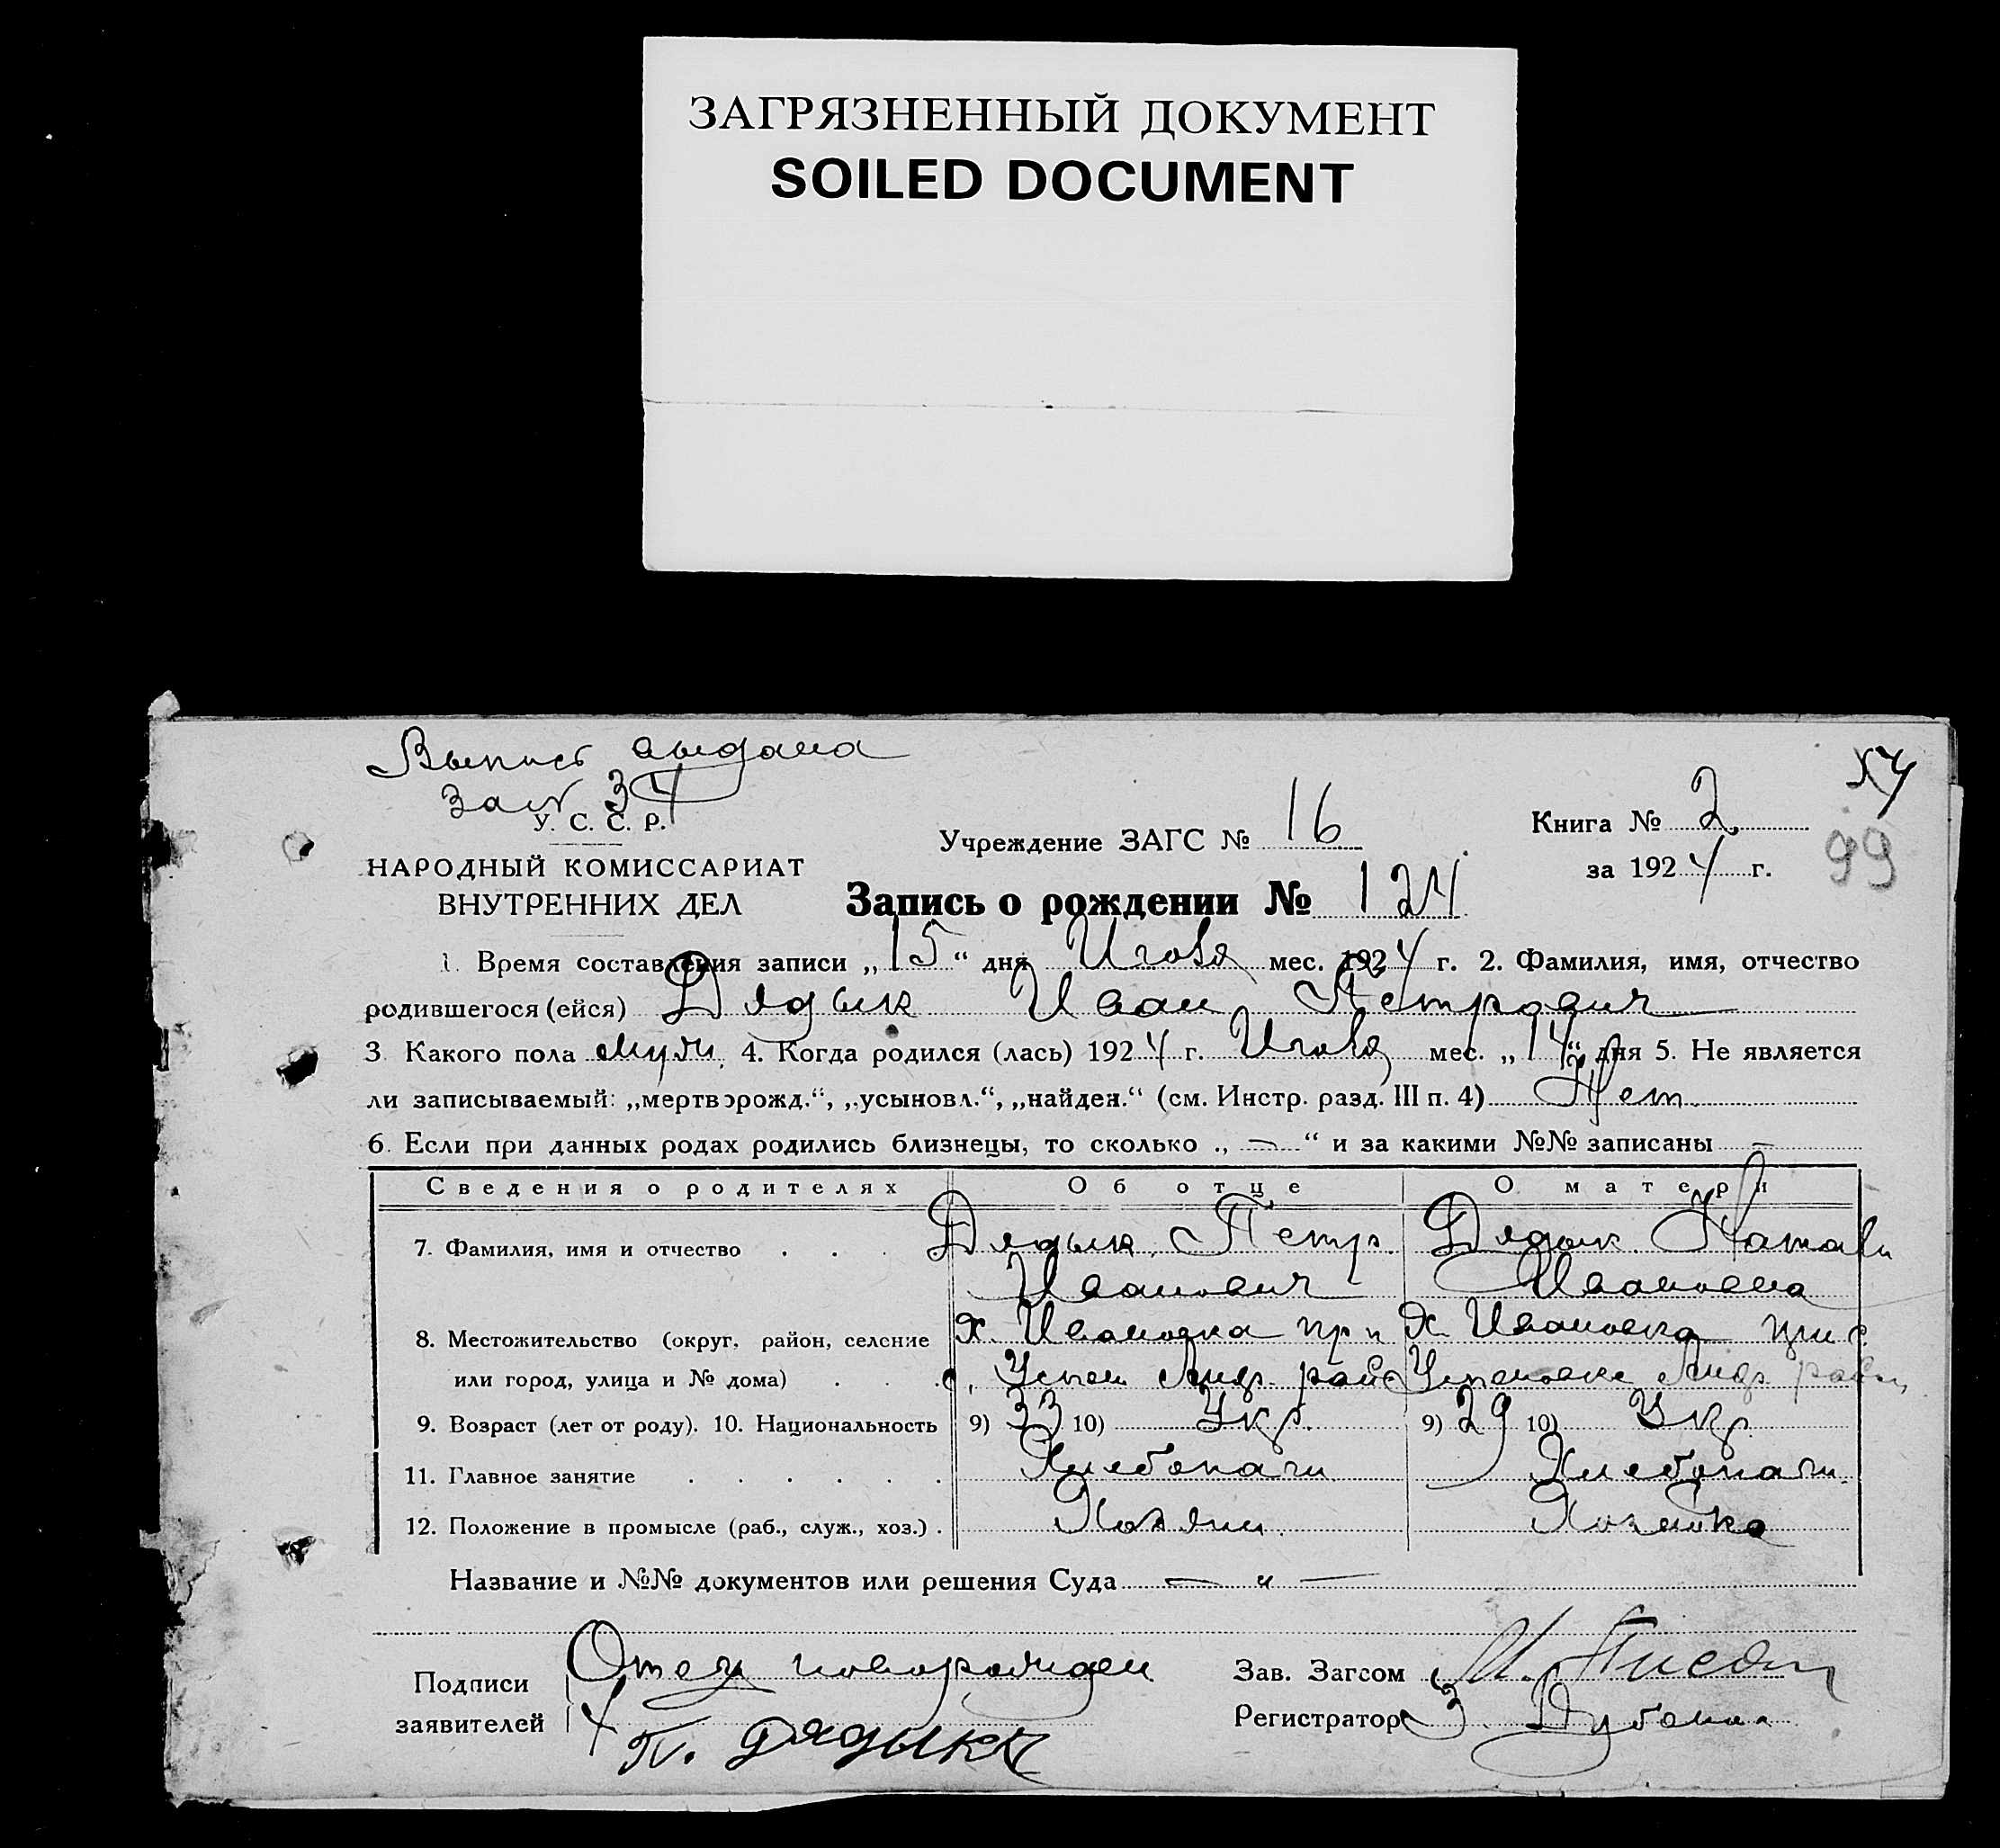 ЗАГРЯЗНЕННЫЙ ДОКУМЕНТ
SOILED DOCUMENT
Выпись выдана
за № 34
54
У. С. С. Р.
НАРОДНЫЙ КОМИССАРИАТ
ВНУТРЕННИХ ДЕЛ
Учреждение ЗАГС № 16
Книга № 2
за 1924 г.
99
Запись о рождении № 124
1. Время составления записи „15“ дня Июля мес. 1924 г. 2. Фамилия, имя, отчество
родившегося (ейся) Дядык Иван Петрович
3. Какого пола муж. 4. Когда родился (лась) 1924 г. Июля мес. „14“ дня 5. Не является
ли записываемый: „мертворожд.“, „усыновл.“, „найден.“ (см. Инстр. разд. III п. 4) Нет
6. Если при данных родах родились близнецы, то сколько „—“ и за какими №№ записаны —
Сведения о родителях Об отце О матери
7. Фамилия, имя и отчество . . . Дядык Петр Дядык
Иванович Ивановна
8. Местожительство (округ, район, селение х. Ивановка при х. Ивановка при с.
или город, улица и № дома) . . .
9. Возраст (лет от роду). 10. Национальность 9) 33 10) Укр. 9) 29 10) Укр.
11. Главное занятие . . . . . . Хлебопаш. Хлебопаш.
12. Положение в промысле (раб., служ., хоз.) . Хозяин Хозяйка
Название и №№ документов или решения Суда — „ —
Подписи Отец новорожден
заявителей П. Дядык
Зав. Загсом
Регистратор